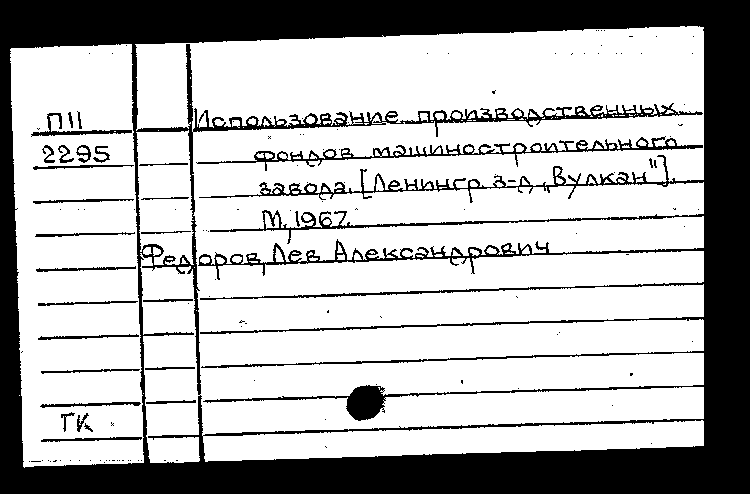 П11 Использование производственных
2295 фондов машиностроительного
завода. [Ленингр. з-д „Вулкан"].
М., 1967.
Федоров, Лев Александрович
ТК